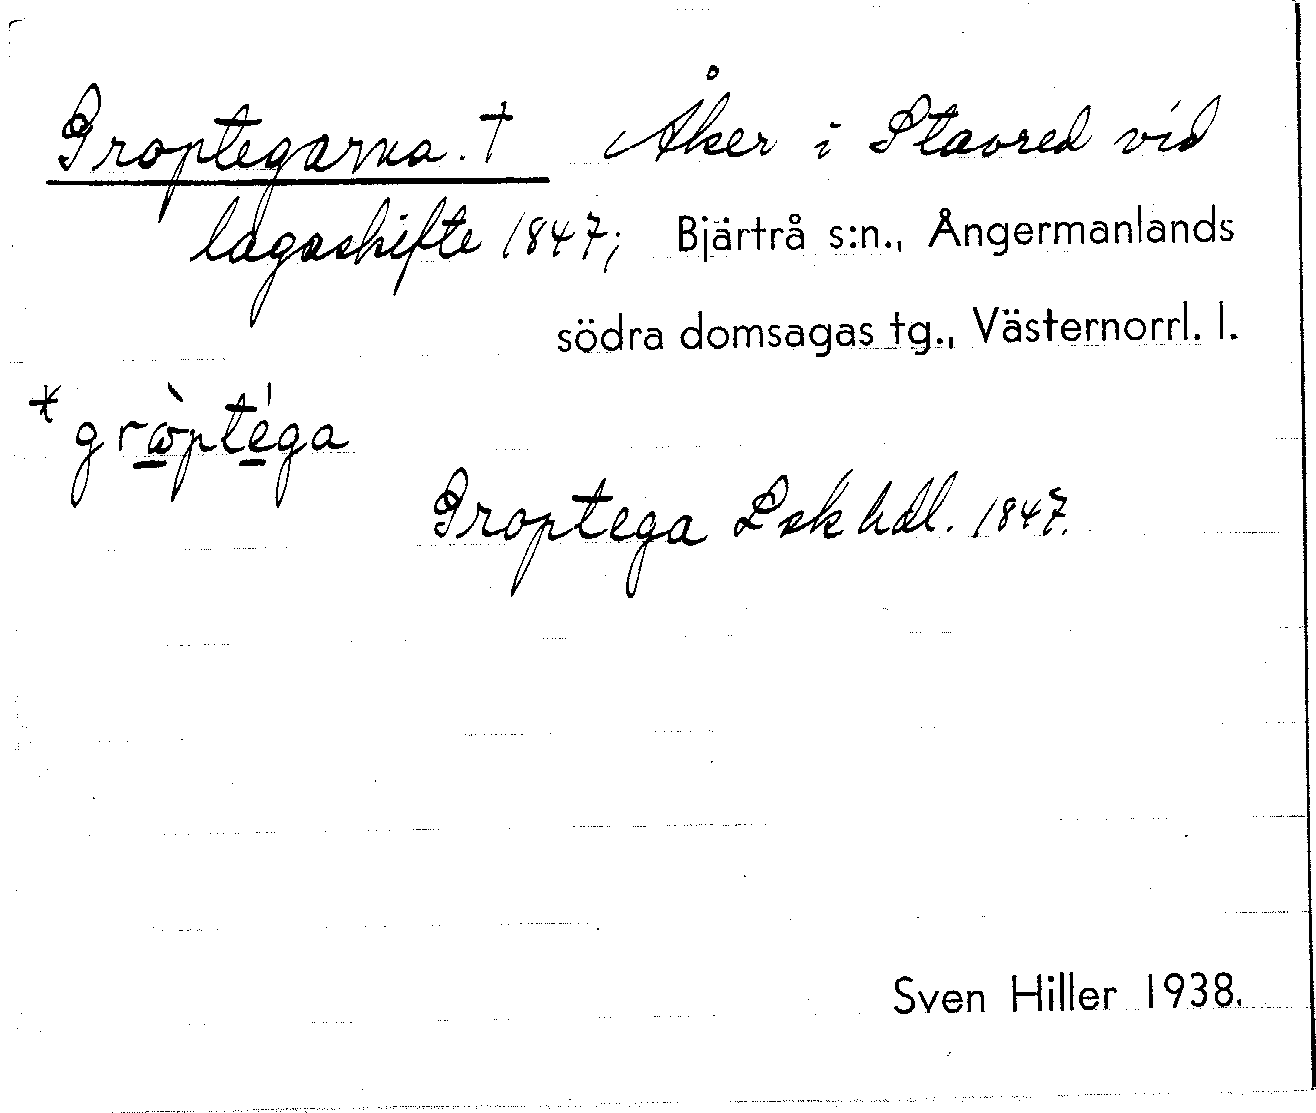 Groptegarna. † Åker i Stavred vid
lagaskifte 1847; Bjärtrå s:n., Ångermanlands
södra domsagas tg., Västernorrl. l.
* grὼptéga
Groptega Lsk hdl. 1847.
Sven Hiller 1938.